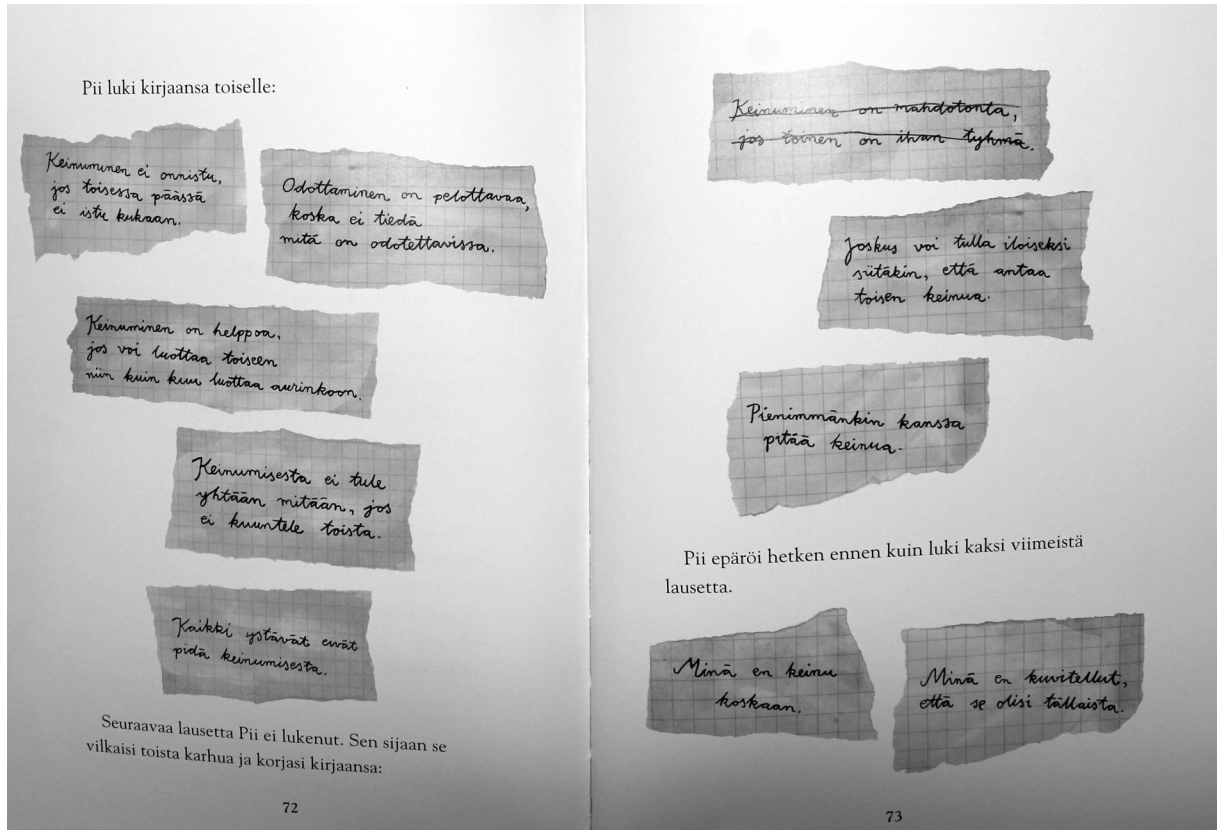 Pii luki kirjaansa toiselle:
Keinuminen ei onnistu,
jos toisessa päässä
ei istu kukaan.
Odottaminen on pelottavaa,
koska ei tiedä
mitä on odotettavissa.
Keinuminen on helppoa,
jos voi luottaa toiseen
niin kuin kuu luottaa aurinkoon.
Keinumisesta ei tule
yhtään mitään, jos
ei kuuntele toista.
Kaikki ystävät eivät
pidä keinumisesta.
Seuraavaa lausetta Pii ei lukenut. Sen sijaan se
vilkaisi toista karhua ja korjasi kirjaansa:
72
Keinuminen on mahdotonta,
jos toinen on ihan tyhmä.
Joskus voi tulla iloiseksi
siitäkin, että antaa
toisen keinua.
Pienimmänkin kanssa
pitää keinua.
Pii epäröi hetken ennen kuin luki kaksi viimeistä
lausetta.
Minä en keinu
koskaan.
Minä en kuvitellut,
että se olisi tällaista.
73